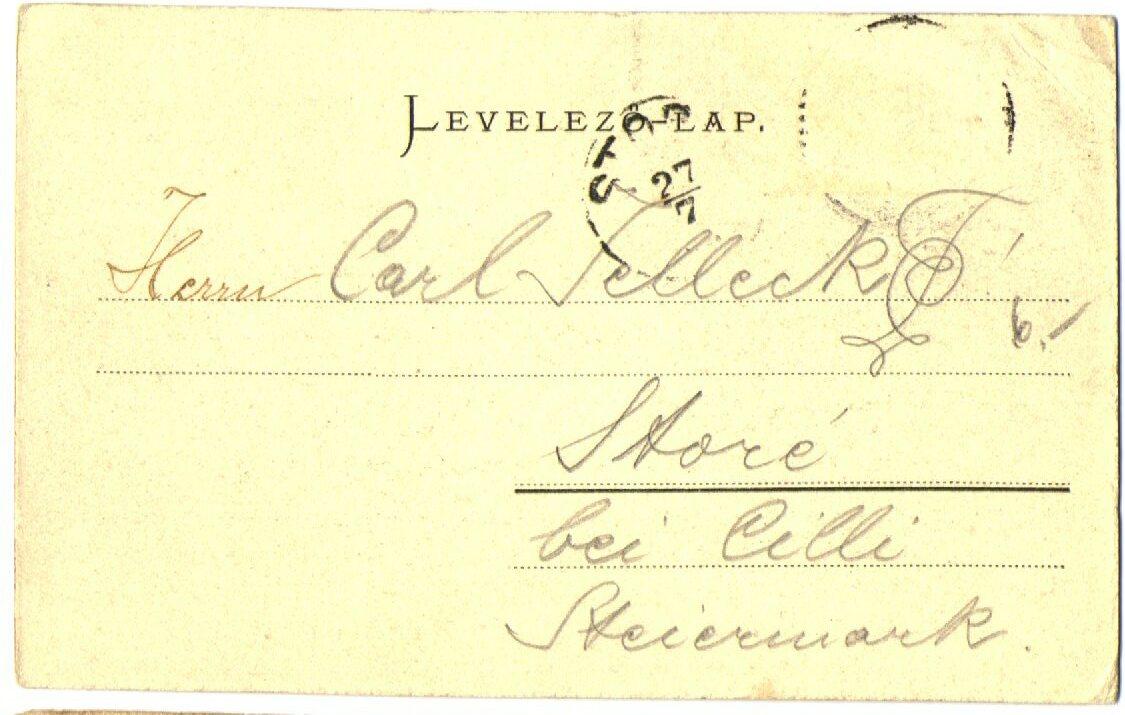 LEVELEZŐ-LAP.
STO
27/7
Herrn Carl Jelleck
6.
Storé
bei Cilli
Steiermark.